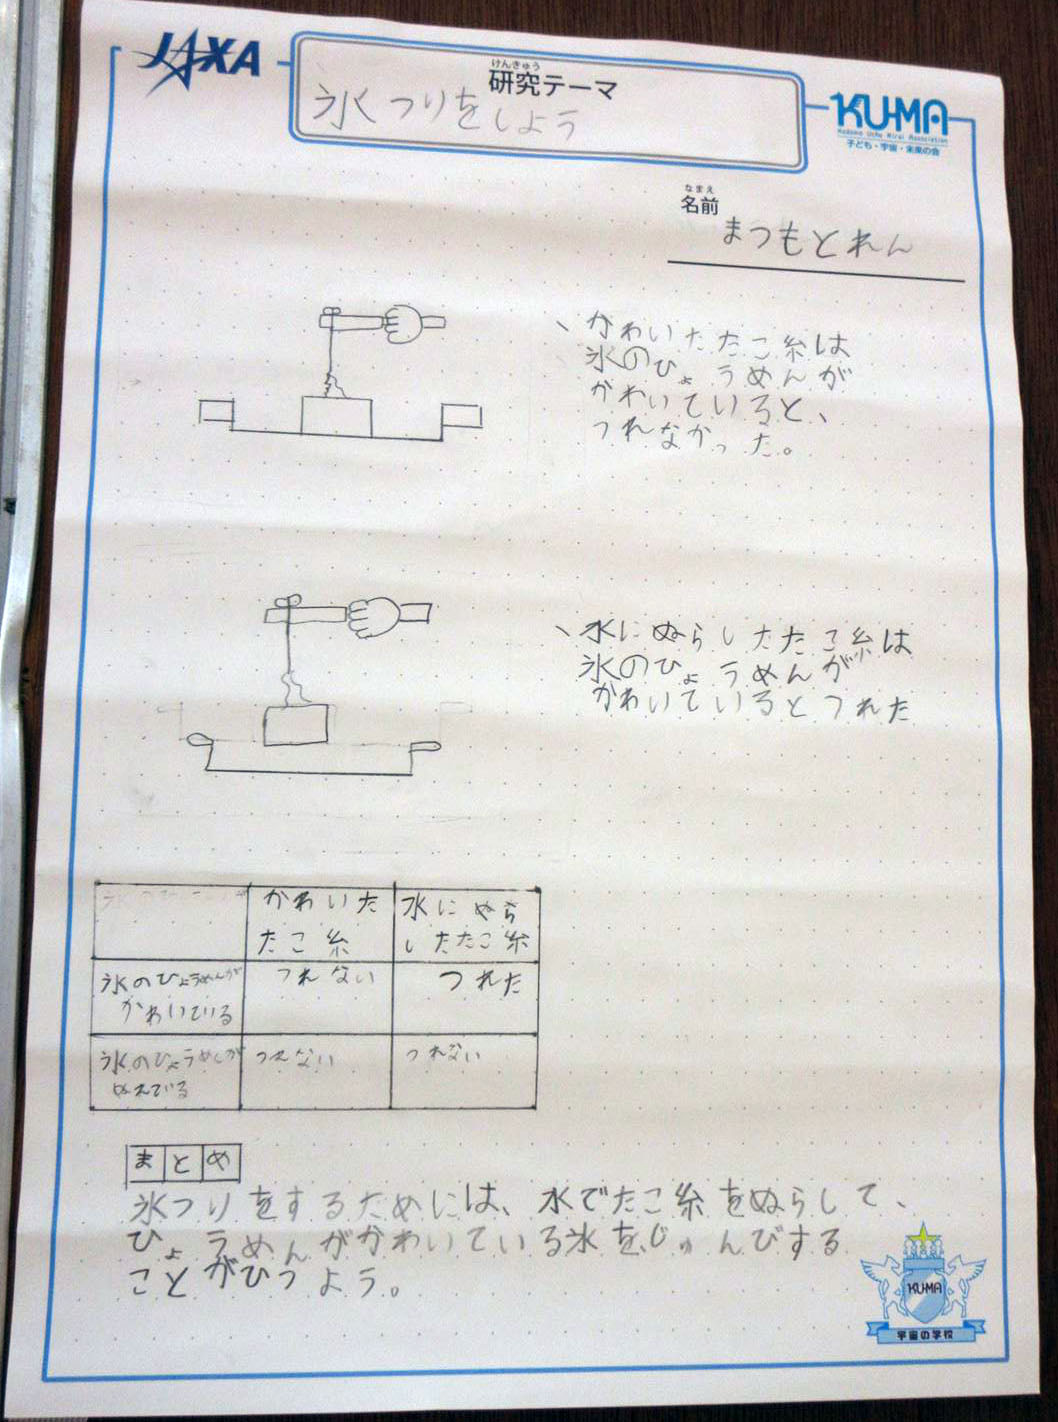 JAXA
けんきゅう
研究テーマ
氷つりをしよう
KU-MA
Kodomo Uchu Mirai Association
子ども・宇宙・未来の会
なまえ
名前
まつもとれん
、かわいたたこ糸は
氷のひょうめんが
かわいていると、
つれなかった。
、水にぬらしたたこ糸は
氷のひょうめんが
かわいているとつれた
かわいた
たこ糸
水にぬら
したたこ糸
氷のひょうめんが
かわいている
つれない
つれた
氷のひょうめんが
ぬれている
つれない
つれない
まとめ
氷つりをするためには、水でたこ糸をぬらして、
ひょうめんがかわいている氷を、じゅんびする
ことがひつよう。
KU-MA
宇宙の学校